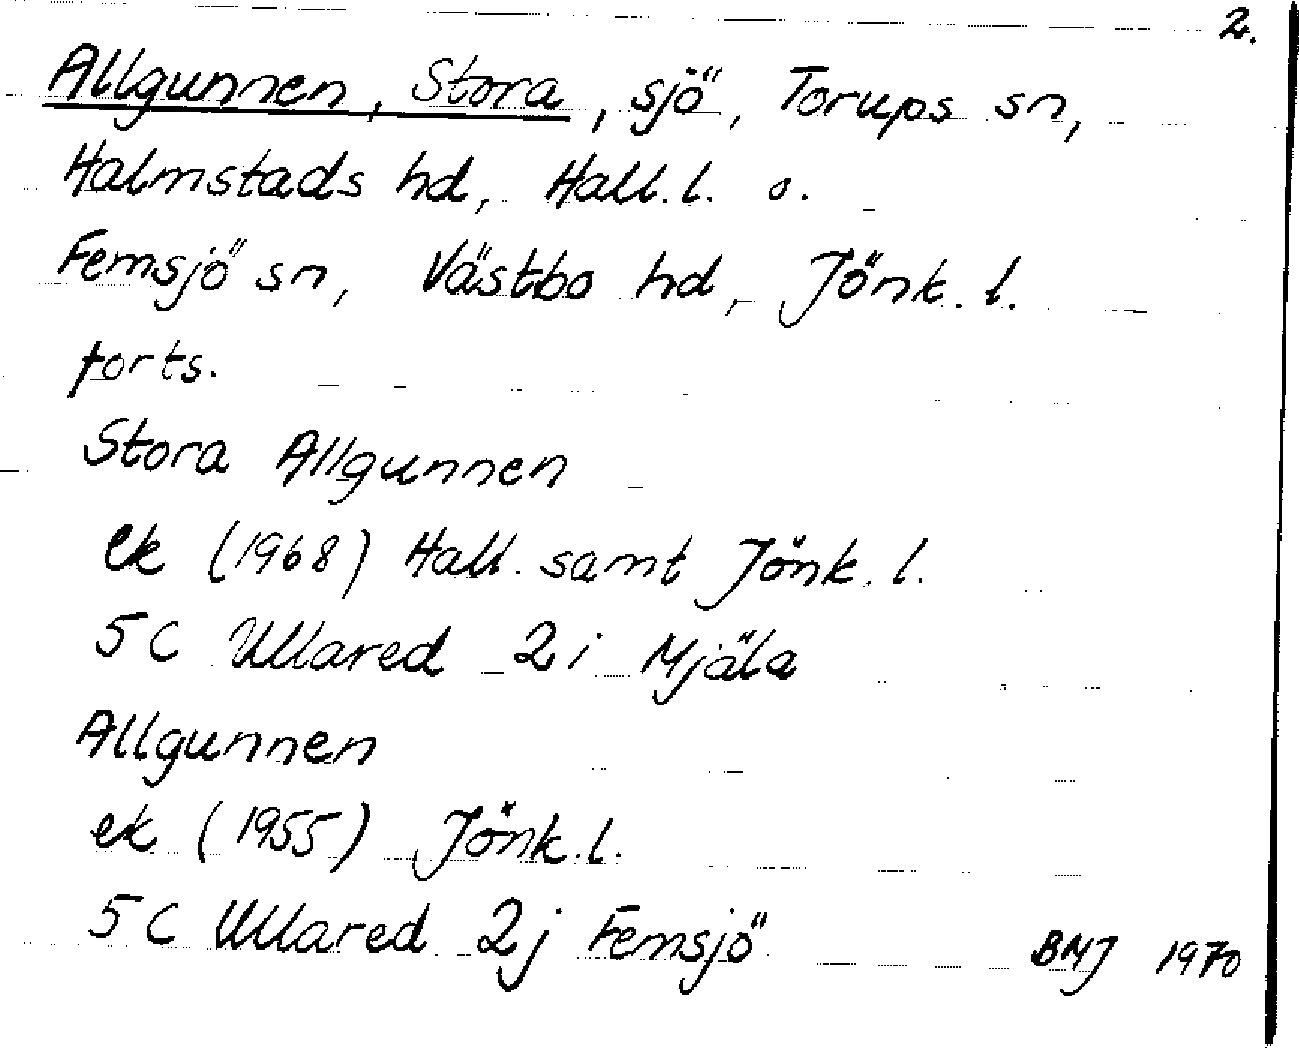 2.
Allgunnen, Stora, sjö, Torups sn,
Halmstads hd, Hall. l. o.
Femsjö sn, Västbo hd, Jönk. l.
forts.
Stora Allgunnen
ek (1968) Hall. samt Jönk. l.
5 C Ullared 2 i Mjäla
Allgunnen
ek (1955) Jönk. l.
5 C Ullared 2 j Femsjö BMJ 1970